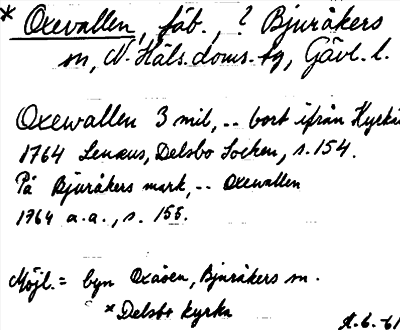 * Oxevallen, fäb., ? Bjuråkers
sn, N. Häls. doms. tg, Gävl. l.
Oxewallen 3 mil, .. bort ifrån Kyrka
1764 Lenæus, Delsbo Socken, s. 154.
På Bjuråkers mark, .. Oxewallen
1764 a.a., s. 155.
Möjl. = byn Oxåsen, Bjuråkers sn.
* Delsbo kyrka